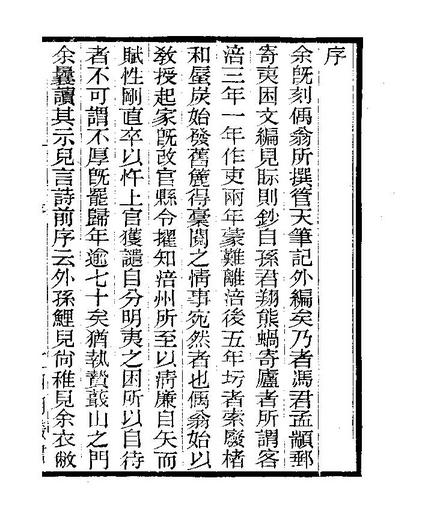 序
余旣刻偶翁所撰管天筆記外編矣乃者馮君孟顓郵
寄夷困文編見眎則鈔自孫君翔熊蝸寄廬者所謂客
涪三年一年作吏兩年蒙難離涪後五年坊者索廢楮
和蜃炭始發舊簏得稾閱之情事宛然者也偶翁始以
敎授起家旣改官縣令擢知涪州所至以淸廉自矢而
賦性剛直卒以忤上官獲譴自分明夷之困所以自待
者不可謂不厚旣罷歸年逾七十矣猶執贄蕺山之門
余曩讀其示兒言詩前序云外孫鯉兒尙稚見余衣敝